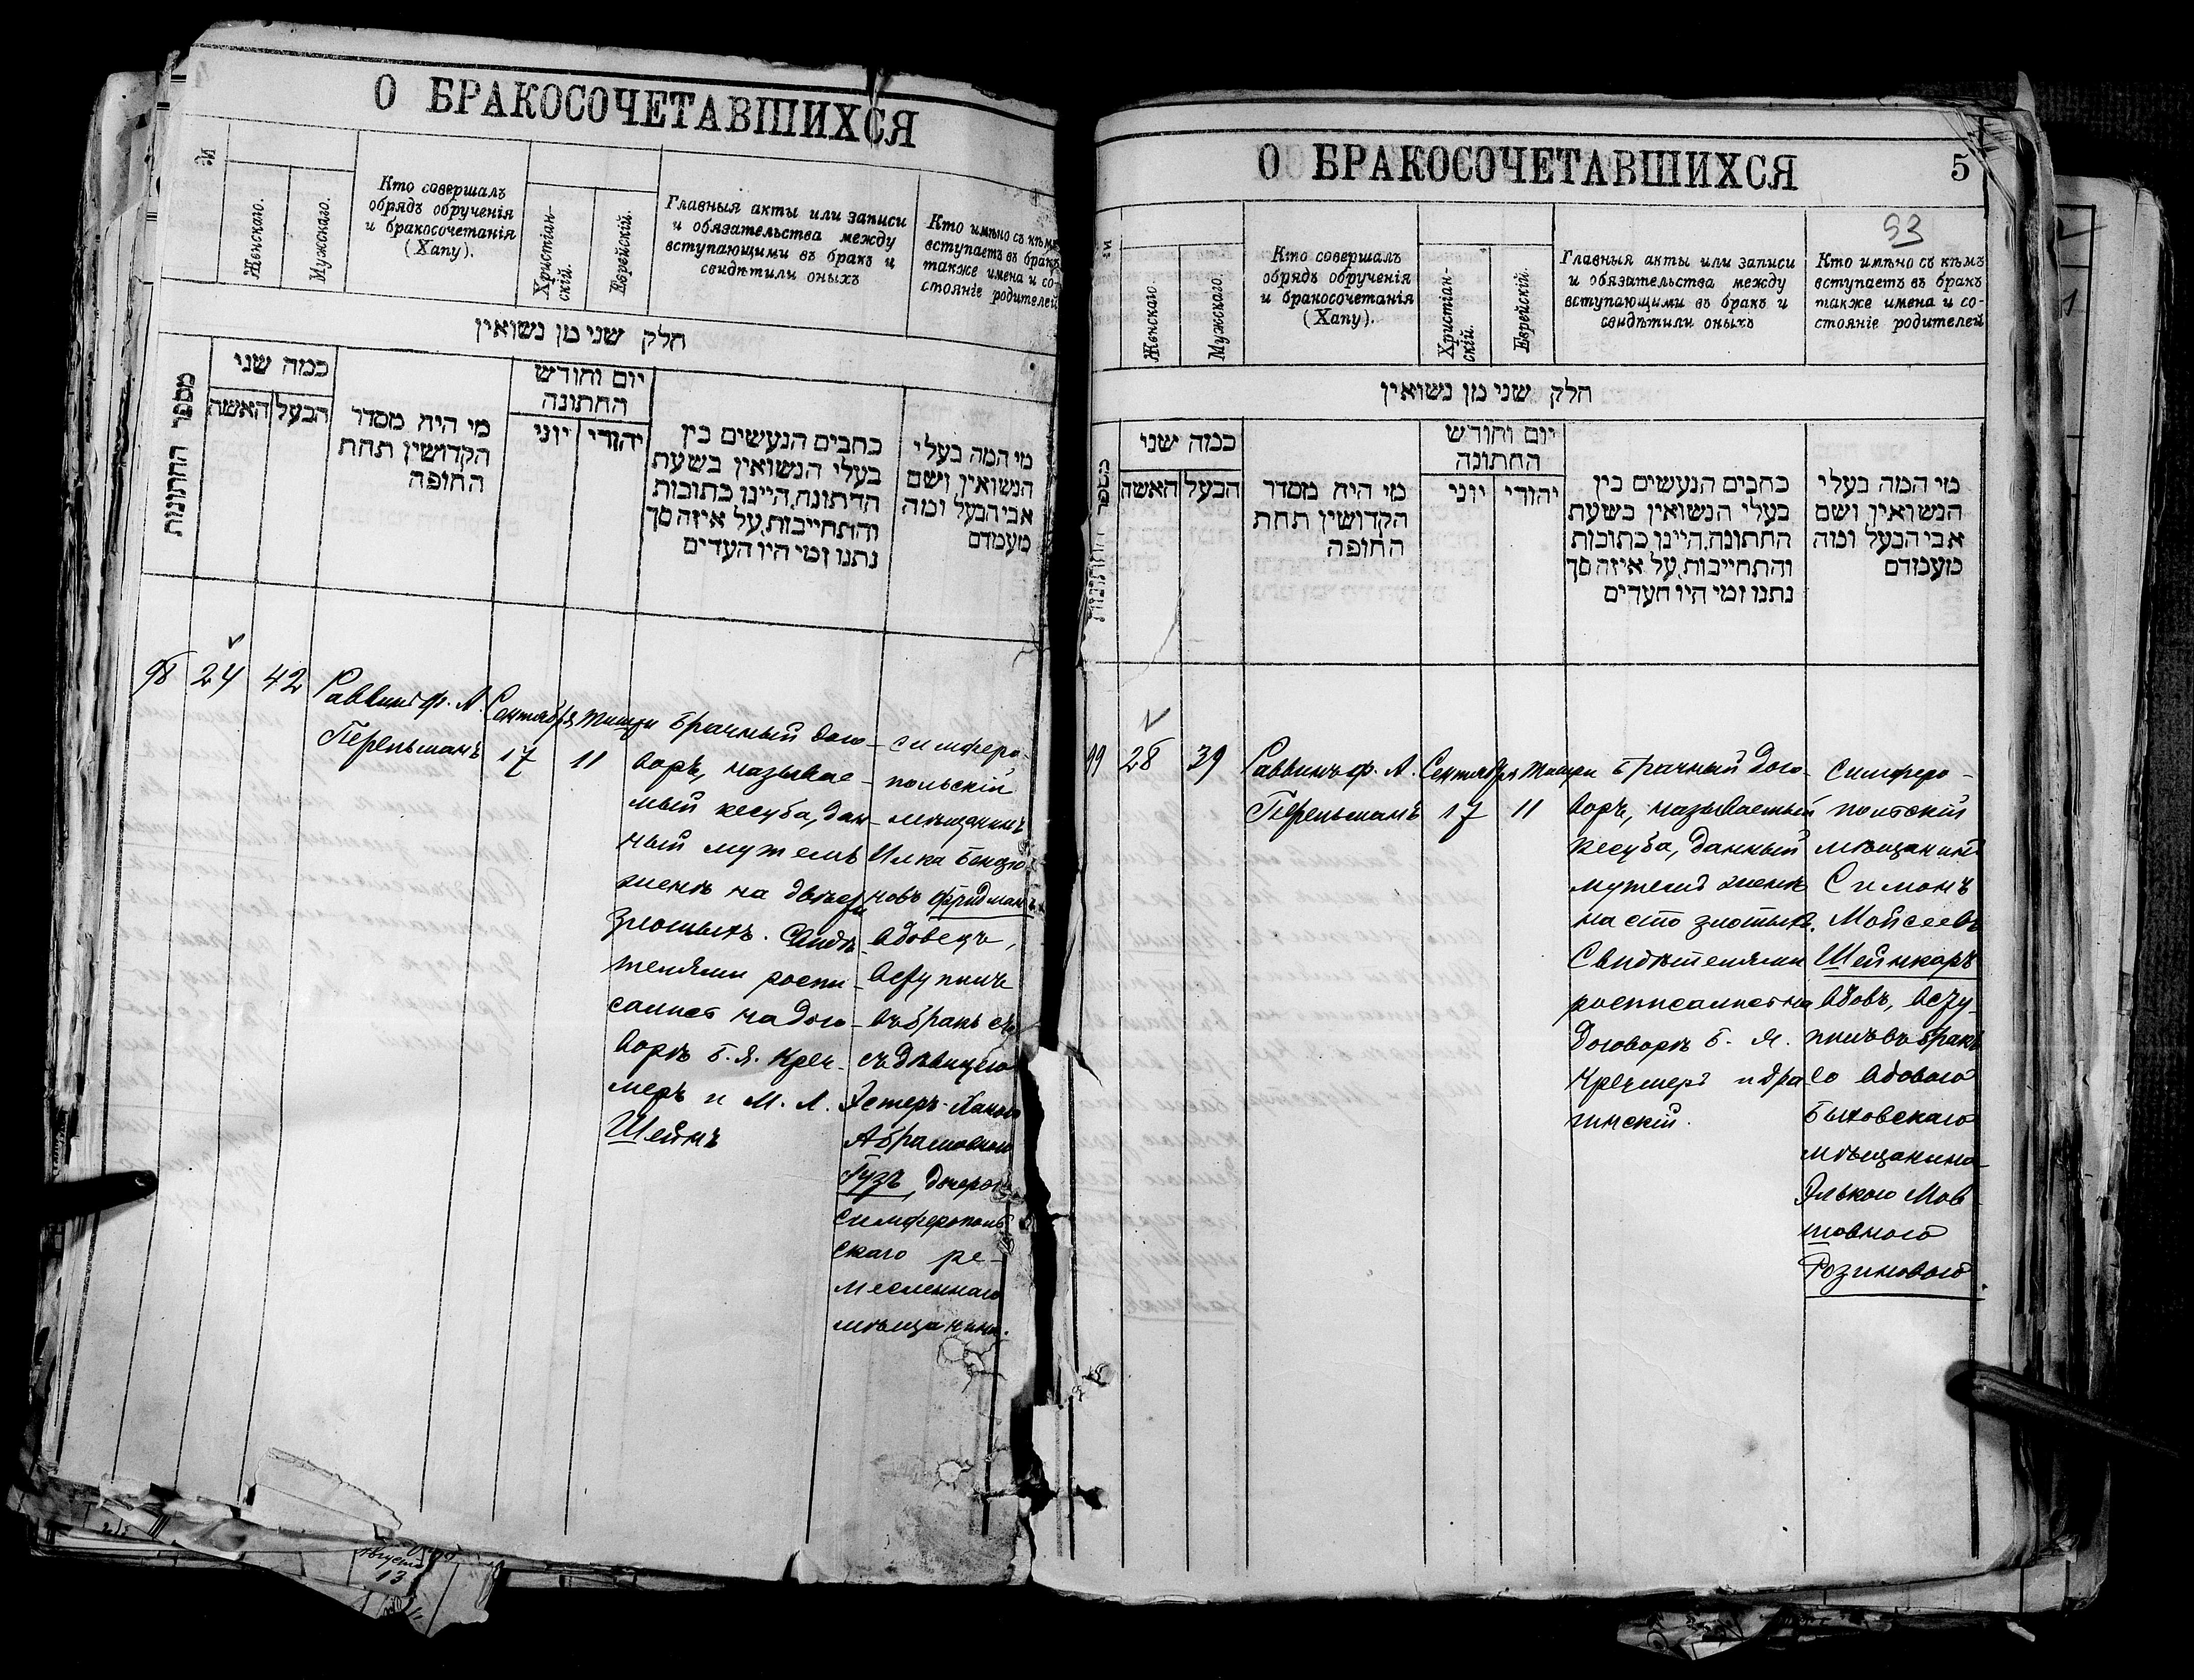 О БРАКОСОЧЕТАВШИХСЯ
№
Женскаго.
Мужскаго.
Кто совершалъ
обрядъ обрученія
и бракосочетанія
(Хапу).
Христіан-
скій.
Еврейскій.
Главныя акты или записи
и обязательства между
вступающими въ бракъ и
свидѣтили оныхъ
Кто имѣно съ кѣмъ
вступаетъ въ бракъ
также имена и со-
стояніе родителей
חלק שני מן נשואין
מספר החתונות
כמה שני
האשה
הבעל
מי היה מסדר
הקדושין תחת
החופה
יום וחודש
החתונה
יוני
יהודי
כתבים הנעשים בין
בעלי הנשואין בשעת
החתונה, היינו כתובות
והתחייבות, על איזה סך
נתנו ומי היו העדים
מי המה בעלי
הנשואין ושם
אבי הבעל ומה
מעמדם
98
24
42
Раввинъ ф. А.
Перельманъ
Сентября
17
Тишри
11
брачный дого-
воръ, называе-
мый кесуба, дан-
ный мужемъ
женѣ на двѣсти
злотыхъ. Свидѣ-
телями роспи-
сались на дого-
ворѣ Б. Я. Креч-
меръ и М. Л.
Шейнъ
симферо-
польскій
мѣщанинъ
Илка Бенціо-
новъ Фридманъ,
вдовецъ,
вступилъ
въ бракъ
съ дѣвицею
Эстеръ-Ханою
Абрамовною
Гузъ, дочерью
симферополь
скаго ре-
месленнаго
мѣщанина.
О БРАКОСОЧЕТАВШИХСЯ
5
93
№
Женскаго.
Мужскаго.
Кто совершалъ
обрядъ обрученія
и бракосочетанія
(Хапу).
Христіан-
скій.
Еврейскій.
Главныя акты или записи
и обязательства между
вступающими въ бракъ и
свидѣтили оныхъ
Кто имѣно съ кѣмъ
вступаетъ въ бракъ
также имена и со-
стояніе родителей
חלק שני מן נשואין
מספר החתונות
כמה שני
האשה
הבעל
מי היה מסדר
הקדושין תחת
החופה
יום וחודש
החתונה
יוני
יהודי
כתבים הנעשים בין
בעלי הנשואין בשעת
החתונה, היינו כתובות
והתחייבות, על איזה סך
נתנו ומי היו העדים
מי המה בעלי
הנשואין ושם
אבי הבעל ומה
מעמדם
99
28
39
Раввинъ ф. А.
Перельманъ
Сентября
17
Тишри
11
брачный дого-
воръ, называемый
кесуба, данный
мужемъ женѣ
на сто злотыхъ.
Свидѣтелями
росписались на
договорѣ Б. Я.
Кречмеръ и Дра
гинскій.
Симферо-
польскій
мѣщанинъ
Симонъ
Мойсеевъ
Шейнкаръ
вдовъ, всту-
пилъ въ бракъ
со вдовою
Быховскаго
мѣщанина
Элькою Мов
шовною
Розиновою.
Августа
13